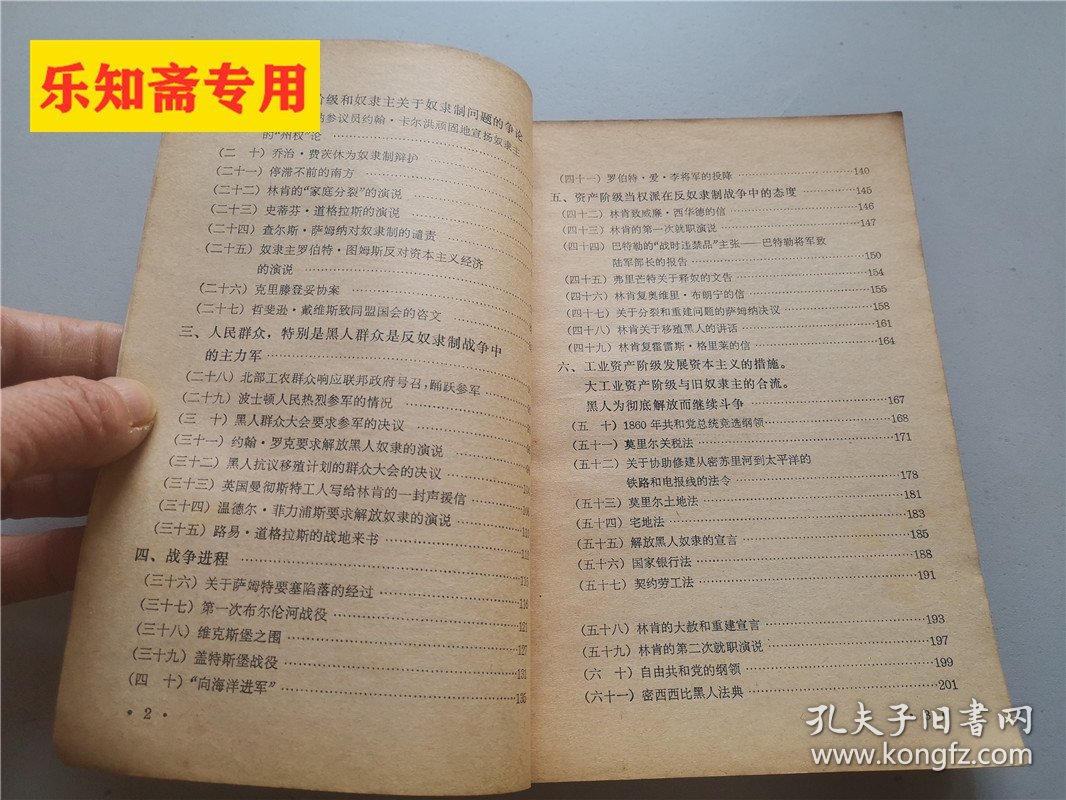 乐知斋专用
阶级和奴隶主关于奴隶制问题的争论
参议员约翰·卡尔洪顽固地宣扬奴隶主
的“州权”论
(二　十) 乔治·费茨休为奴隶制辩护
(二十一) 停滞不前的南方
(二十二) 林肯的“家庭分裂”的演说
(二十三) 史蒂芬·道格拉斯的演说
(二十四) 查尔斯·萨姆纳对奴隶制的谴责
(二十五) 奴隶主罗伯特·图姆斯反对资本主义经济
的演说
(二十六) 克里滕登妥协案
(二十七) 哲斐逊·戴维斯致同盟国会的咨文
三、人民群众，特别是黑人群众是反奴隶制战争中
的主力军
(二十八) 北部工农群众响应联邦政府号召，踊跃参军
(二十九) 波士顿人民热烈参军的情况
(三　十) 黑人群众大会要求参军的决议
(三十一) 约翰·罗克要求解放黑人奴隶的演说
(三十二) 黑人抗议移殖计划的群众大会的决议
(三十三) 英国曼彻斯特工人写给林肯的一封声援信
(三十四) 温德尔·菲力浦斯要求解放奴隶的演说
(三十五) 路易·道格拉斯的战地来书
四、战争进程
(三十六) 关于萨姆特要塞陷落的经过 116
(三十七) 第一次布尔伦河战役 121
(三十八) 维克斯堡之围 127
(三十九) 盖特斯堡战役 131
(四　十) “向海洋进军” 135
· 2 ·
(四十一) 罗伯特·爱·李将军的投降 140
五、资产阶级当权派在反奴隶制战争中的态度 145
(四十二) 林肯致威廉·西华德的信 146
(四十三) 林肯的第一次就职演说 147
(四十四) 巴特勒的“战时违禁品”主张——巴特勒将军致
陆军部长的报告 150
(四十五) 弗里芒特关于释奴的文告 154
(四十六) 林肯复奥维里·布朗宁的信 155
(四十七) 关于分裂和重建问题的萨姆纳决议 158
(四十八) 林肯关于移殖黑人的讲话 161
(四十九) 林肯复霍雷斯·格里莱的信 164
六、工业资产阶级发展资本主义的措施。
大工业资产阶级与旧奴隶主的合流。
黑人为彻底解放而继续斗争 167
(五　十) 1860年共和党总统竞选纲领 168
(五十一) 莫里尔关税法 171
(五十二) 关于协助修建从密苏里河到太平洋的
铁路和电报线的法令 178
(五十三) 莫里尔土地法 181
(五十四) 宅地法 183
(五十五) 解放黑人奴隶的宣言 185
(五十六) 国家银行法 188
(五十七) 契约劳工法 191
(五十八) 林肯的大赦和重建宣言 193
(五十九) 林肯的第二次就职演说 197
(六　十) 自由共和党的纲领 199
(六十一) 密西西比黑人法典 201
孔夫子旧书网
www.kongfz.com